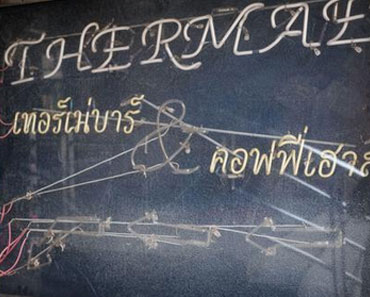 THERMAE
เทอร์เม่บาร์
คอฟฟี่เฮาส